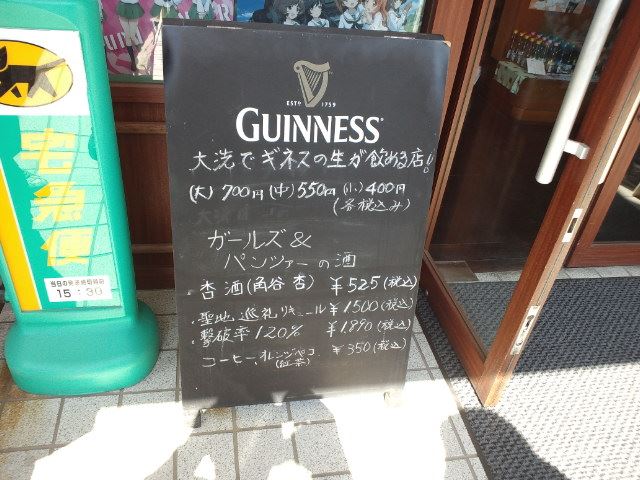 ESTD 1759
GUINNESS
大洗でギネスの生が飲める店!!
(大)700円(中)550円(小)400円
(各税込み)
ガールズ&
パンツァーの酒
・杏酒(角谷杏) ¥525(税込)
・聖地巡礼リキュール ¥1500(税込)
・撃破率120% ¥1,890(税込)
コーヒー、オレンジペコ ¥350(税込)
(紅茶)
宅急便
当日の発送締切時間
15:30